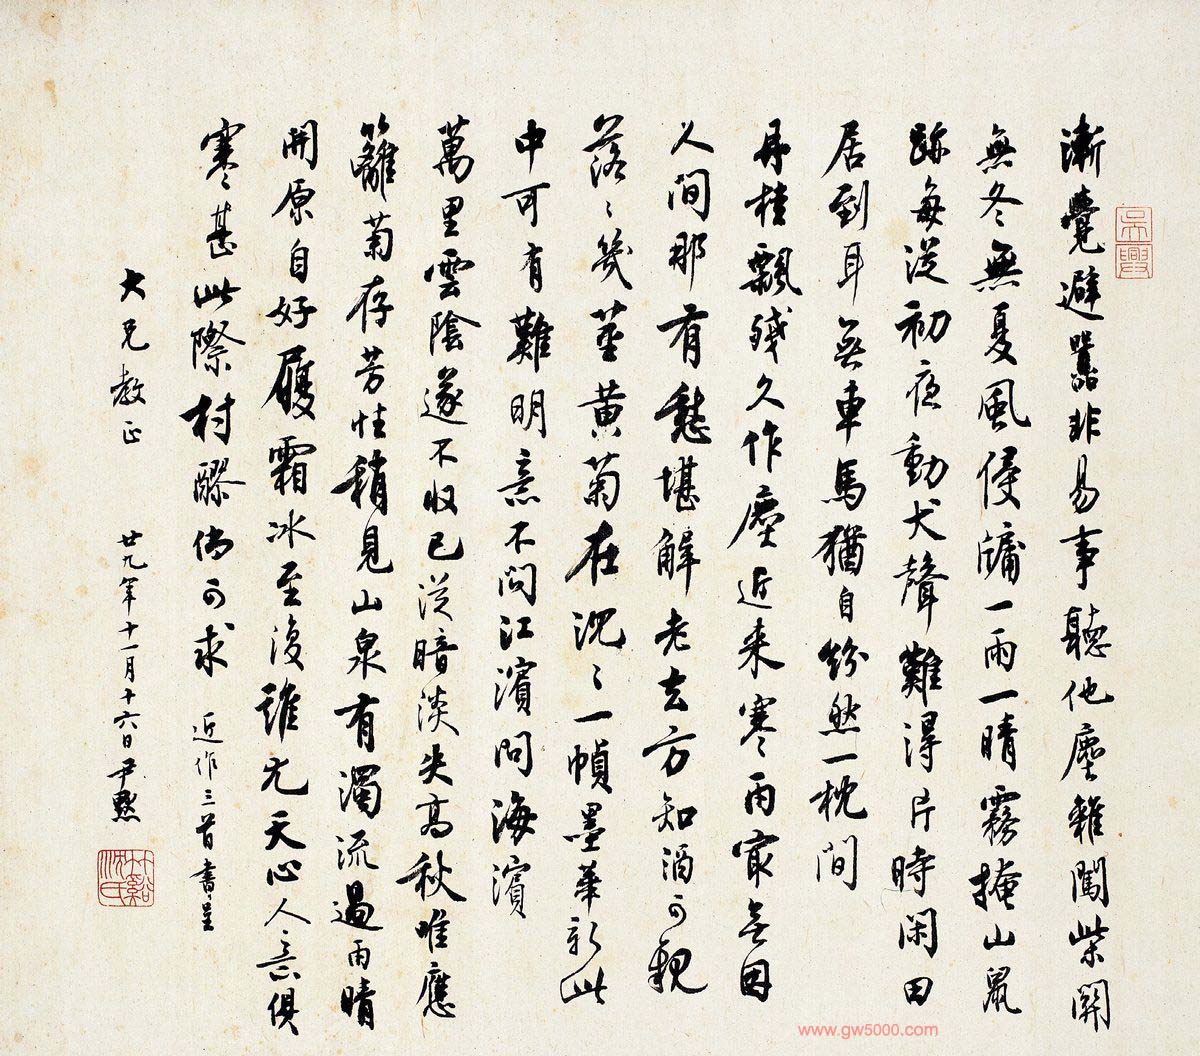 吳興
漸覺避囂非易事聽他塵雜闖柴關
無冬無夏風侵牖一雨一晴霧掩山鼠
跡每從初夜動犬聲難得片時閑田
居到耳無車馬猶自紛然一枕間
丹桂飄殘久作塵近來寒雨寂無因
人間那有愁堪解老去方知酒可親
落〻幾莖黃菊在沉〻一幀墨華新此
中可有難明意不問江濱問海濱
萬里雲陰遂不收已從暗淡失高秋唯應
籬菊存芳性稍見山泉有濁流過雨晴
開原自好履霜冰至復誰尤天心人意俱
寒甚此際村醪倘可求 近作三首書呈
大兄教正 廿九年十一月十六日尹默
竹谿沈氏
www.gw5000.com